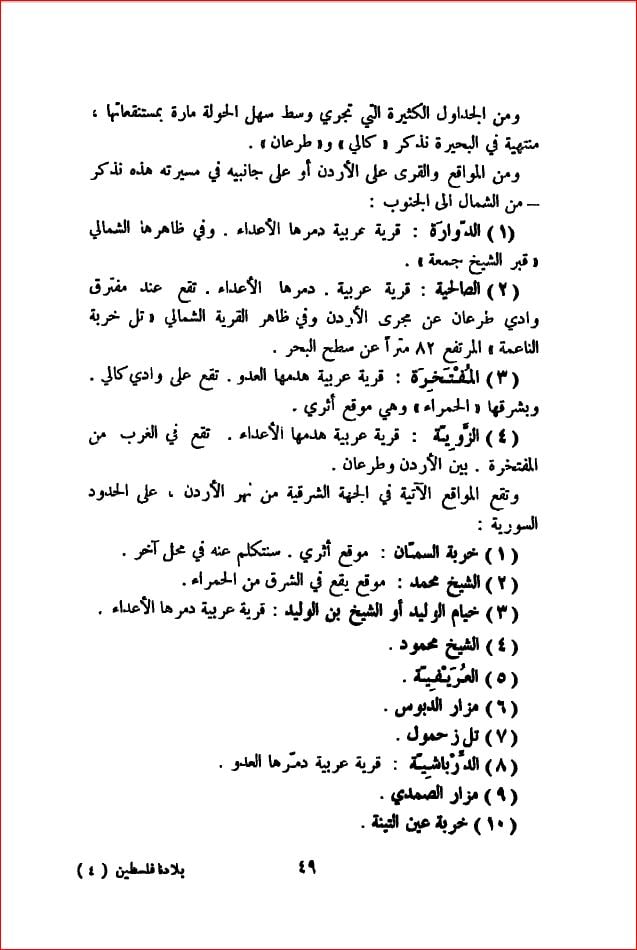 ومن الجداول الكثيرة التي تجري وسط سهل الحولة مارة بمستنقعاتها ،
منتهية في البحيرة نذكر « كالي » و« طرعان » .
ومن المواقع والقرى على الأردن أو على جانبيه في مسيرته هذه نذكر
– من الشمال الى الجنوب :
(١) الدّوارة : قرية عربية دمرها الأعداء . وفي ظاهرها الشمالي
« قبر الشيخ جمعة » .
(٢) الصالحية : قرية عربية . دمرها الأعداء . تقع عند مفترق
وادي طرعان عن مجرى الأردن وفي ظاهر القرية الشمالي « تل خربة
الناعمة » المرتفع ٨٢ متراً عن سطح البحر .
(٣) المُفْتَخِرَة : قرية عربية هدمها العدو . تقع على وادي كالي .
وبشرقها « الحمراء » وهي موقع أثري .
(٤) الزَّوِيَّة : قرية عربية هدمها الأعداء . تقع في الغرب من
المفتخرة . بين الأردن وطرعان .
وتقع المواقع الآتية في الجهة الشرقية من نهر الأردن ، على الحدود
السورية :
(١) خربة السمّان : موقع أثري . سنتكلم عنه في محل آخر .
(٢) الشيخ محمد : موقع يقع في الشرق من الحمراء .
(٣) خيام الوليد أو الشيخ بن الوليد : قرية عربية دمرها الأعداء .
(٤) الشيخ محمود .
(٥) العُرَيْفِيّة .
(٦) مزار الدبوس .
(٧) تل زحمول .
(٨) الدَّرْباشِيّة : قرية عربية دمّرها العدو .
(٩) مزار الصمدي .
(١٠) خربة عين التينة .
٤٩
بلادنا فلسطين (٤)